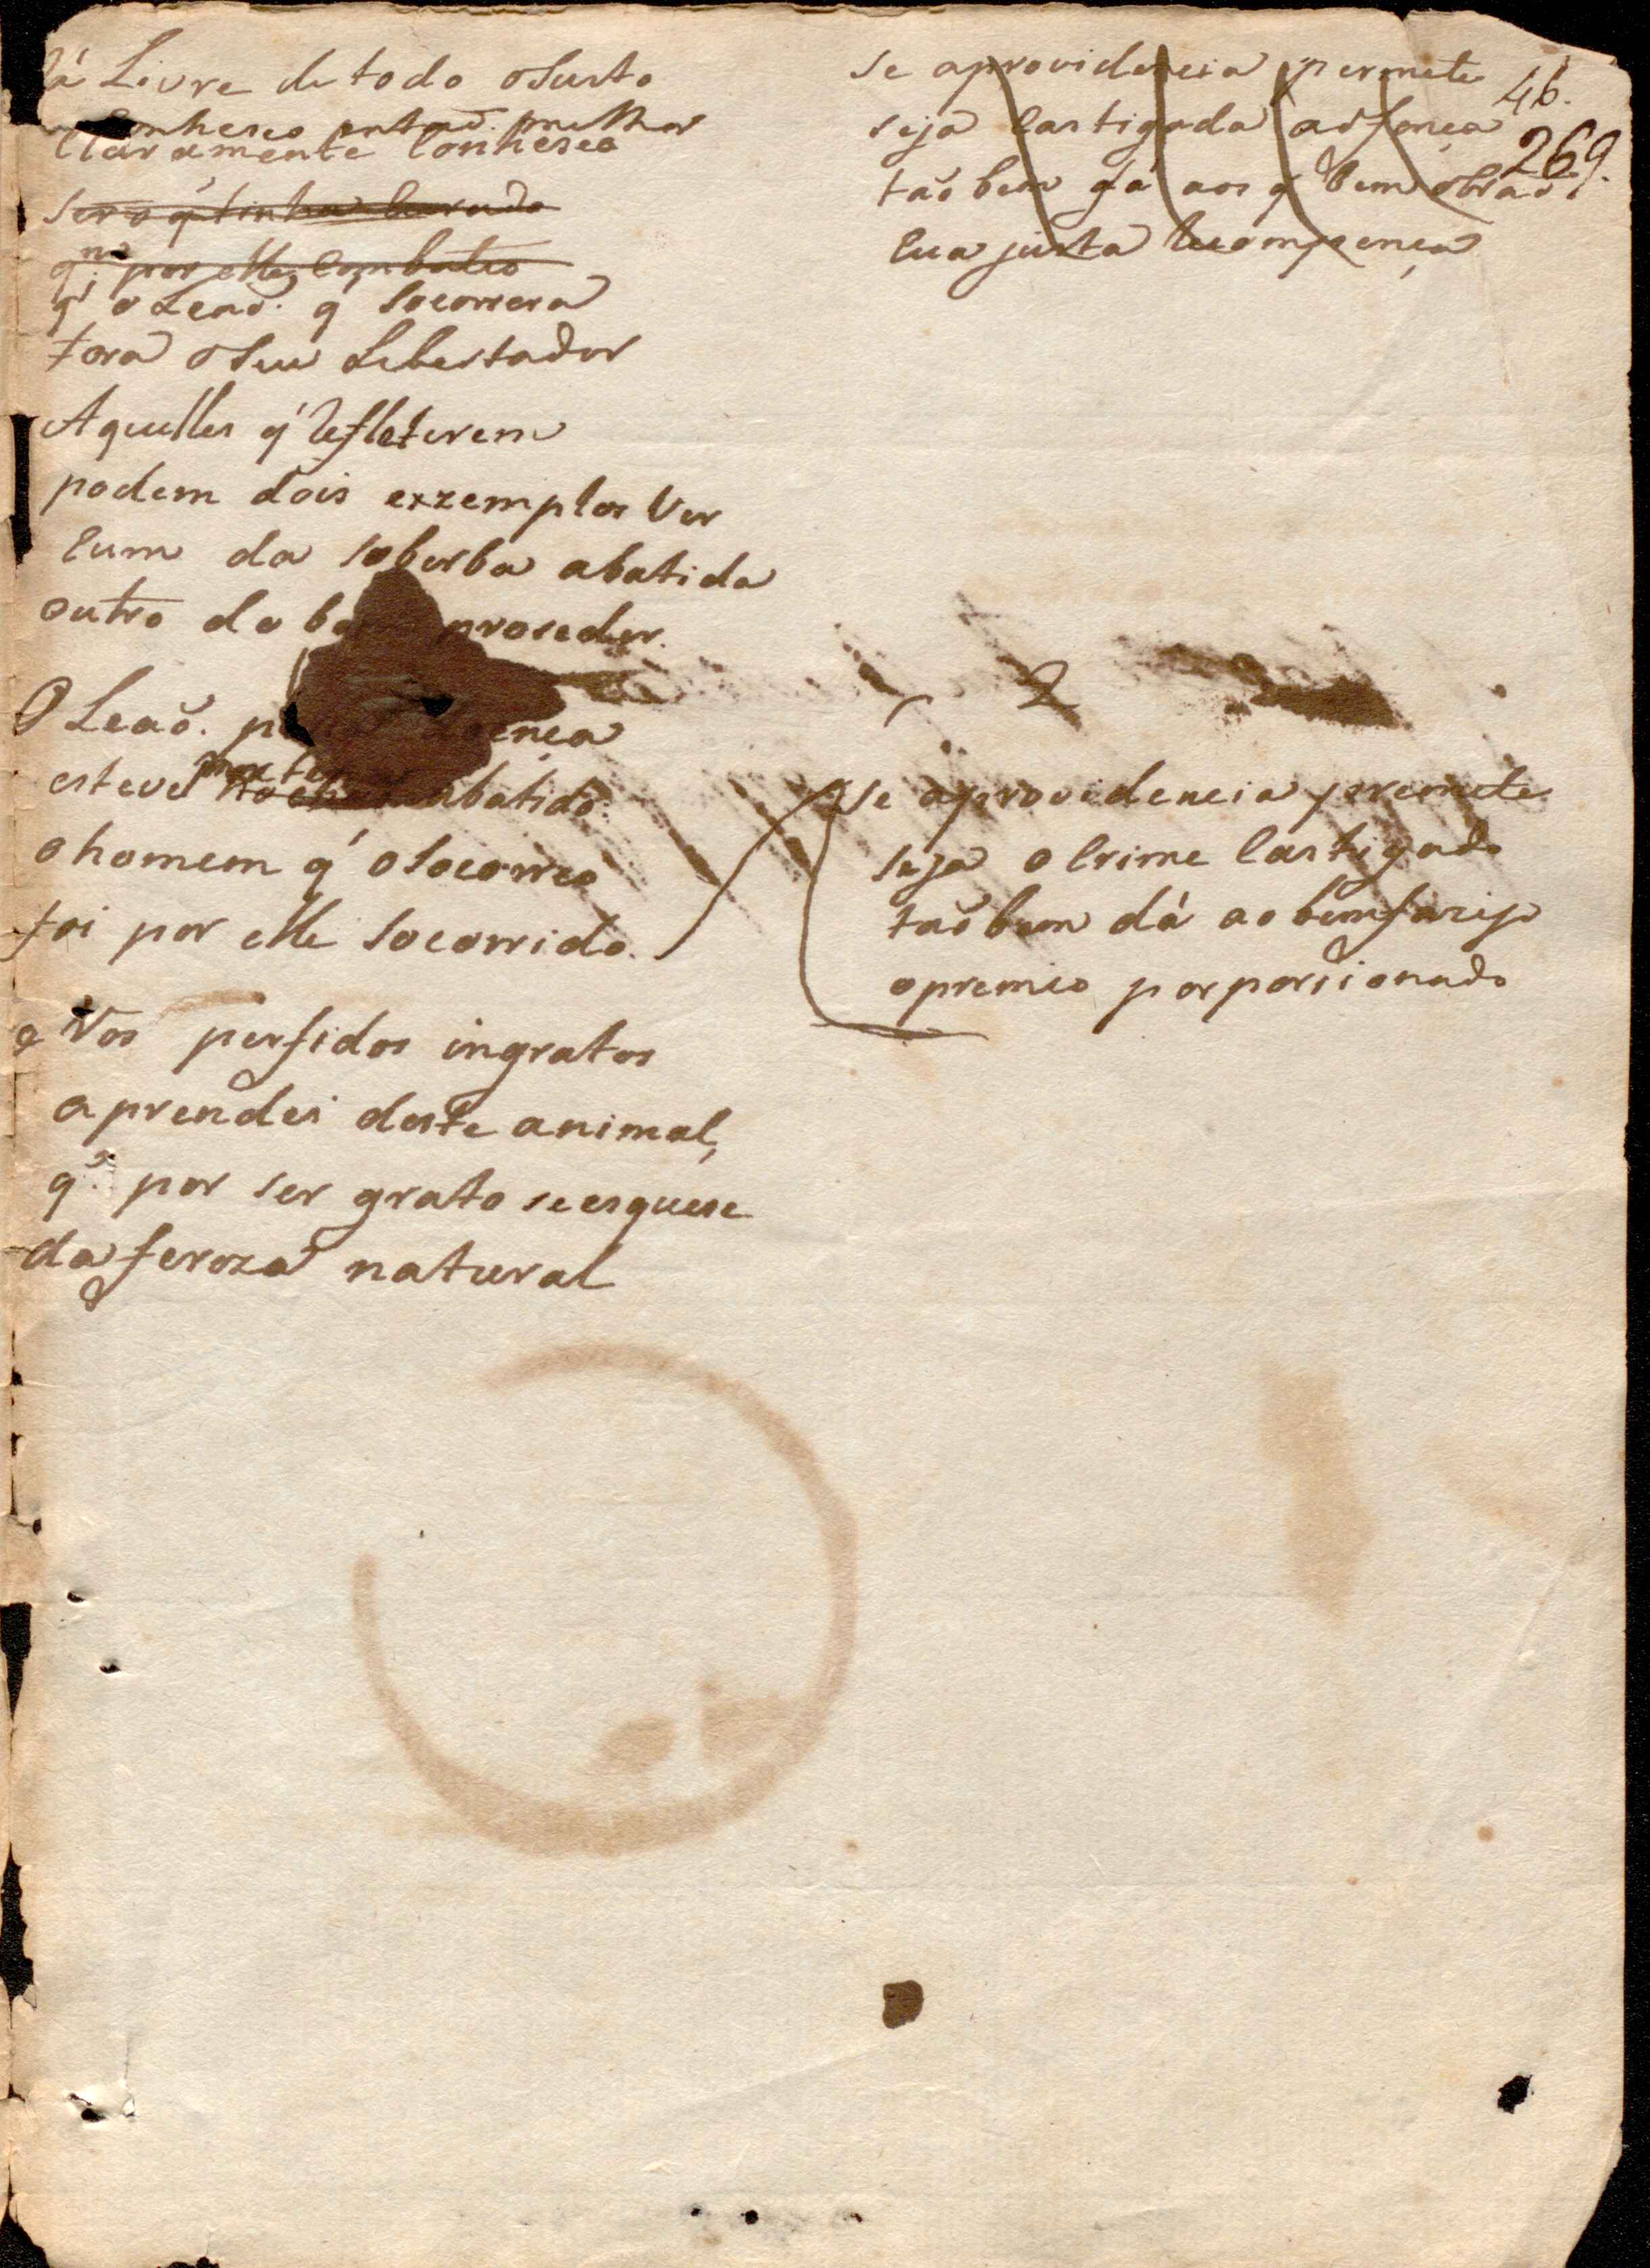 já Livre de todo osusto
Conheseo entaõ melhor
Claramente Conheseo
ser o q' tinha
q.m por elle Combateo
q' o Leaõ. q' socorrera
fora oseu Libertador
Aquelles q' Refletirem
podem dois exzemplos Ver
hum da soberba abatida
outro do proseder.
O Leaõ.
esteve abatido.
ohomem q' osocorreo
foi por elle socorrido.
e Vos perfidos ingratos
aprendei deste animal,
q.e por ser grato seesquese
da feroza natural
46.
269.
se aprovidencia permete
seja Castigada aofença
taõbem dá aos q' bem obraõ
Sua justa Recompença
2
se aprovedencia premete
seja o Crime Castigado
taõbem dá ao bemfazejo
opremio porporsionado